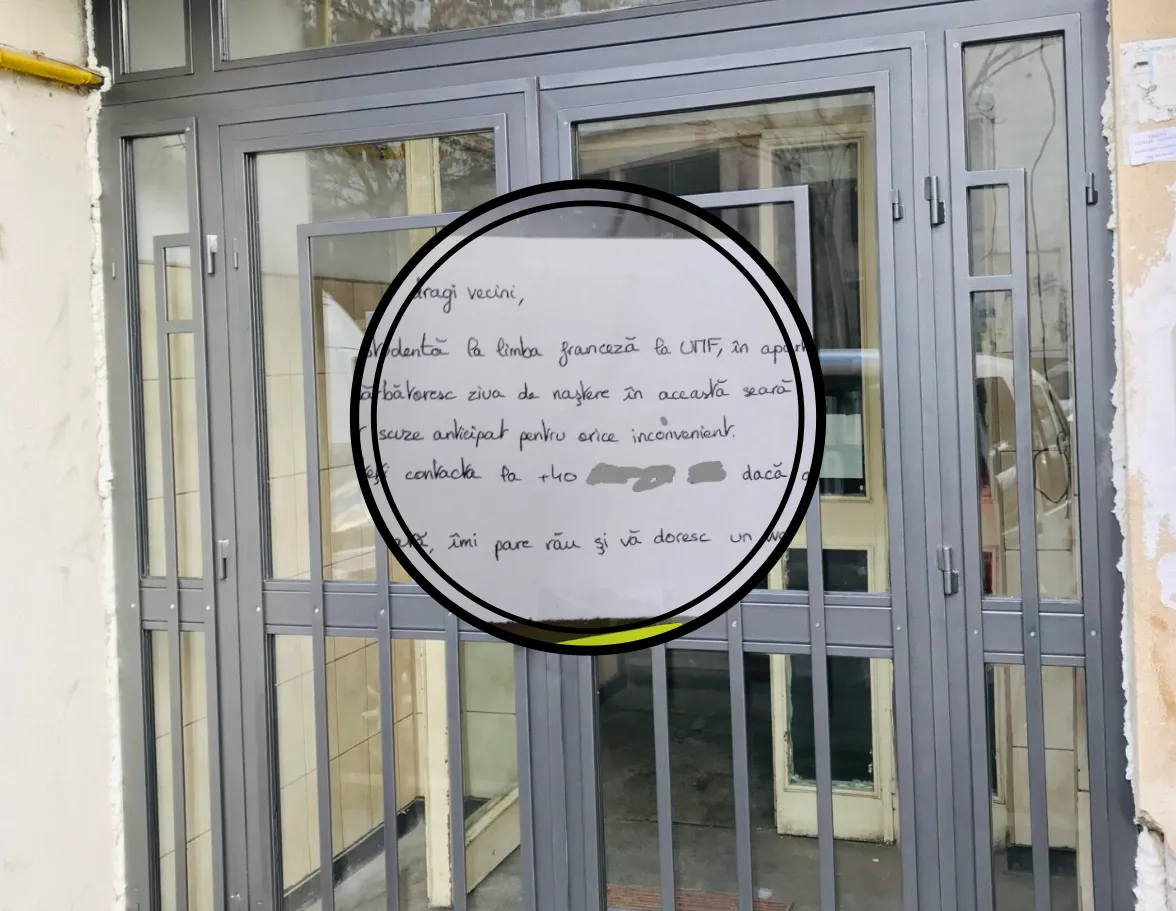 dragi vecini,
studentă la limba franceză la UMF, în
sărbătoresc ziva de naștere în această seară
scuze anticipat pentru orice inconvenient.
contacta la +40 dacă
îmi pare rău și vă doresc un